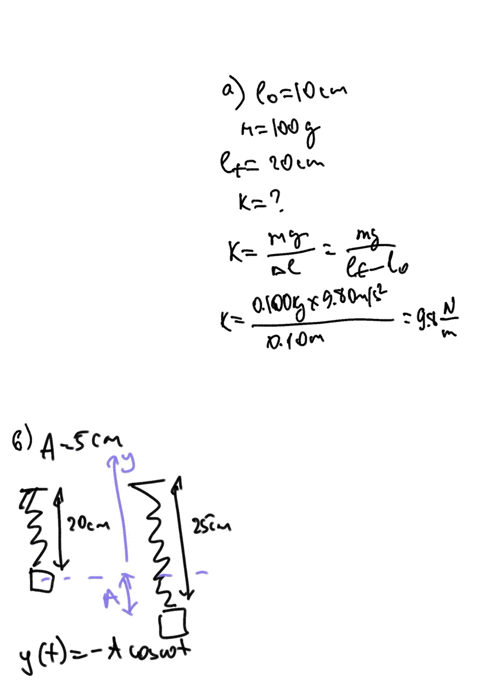 a) l₀=10cm
m=100g
lf=20cm
K=?
K=mg/Δl=mg/(lf-l₀)
K=0.100kg×9.80m/s²/0.10m=9.8 N/m
b) A=5cm
y
20cm
25cm
A
y(t)=-A cosωt